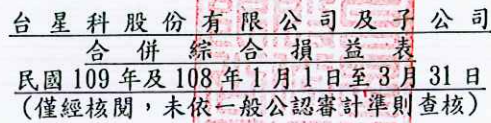 台星科股份有限公司及子公司
合併綜合損益表
民國109年及108年1月1日至3月31日
(僅經核閱，未依一般公認審計準則查核)